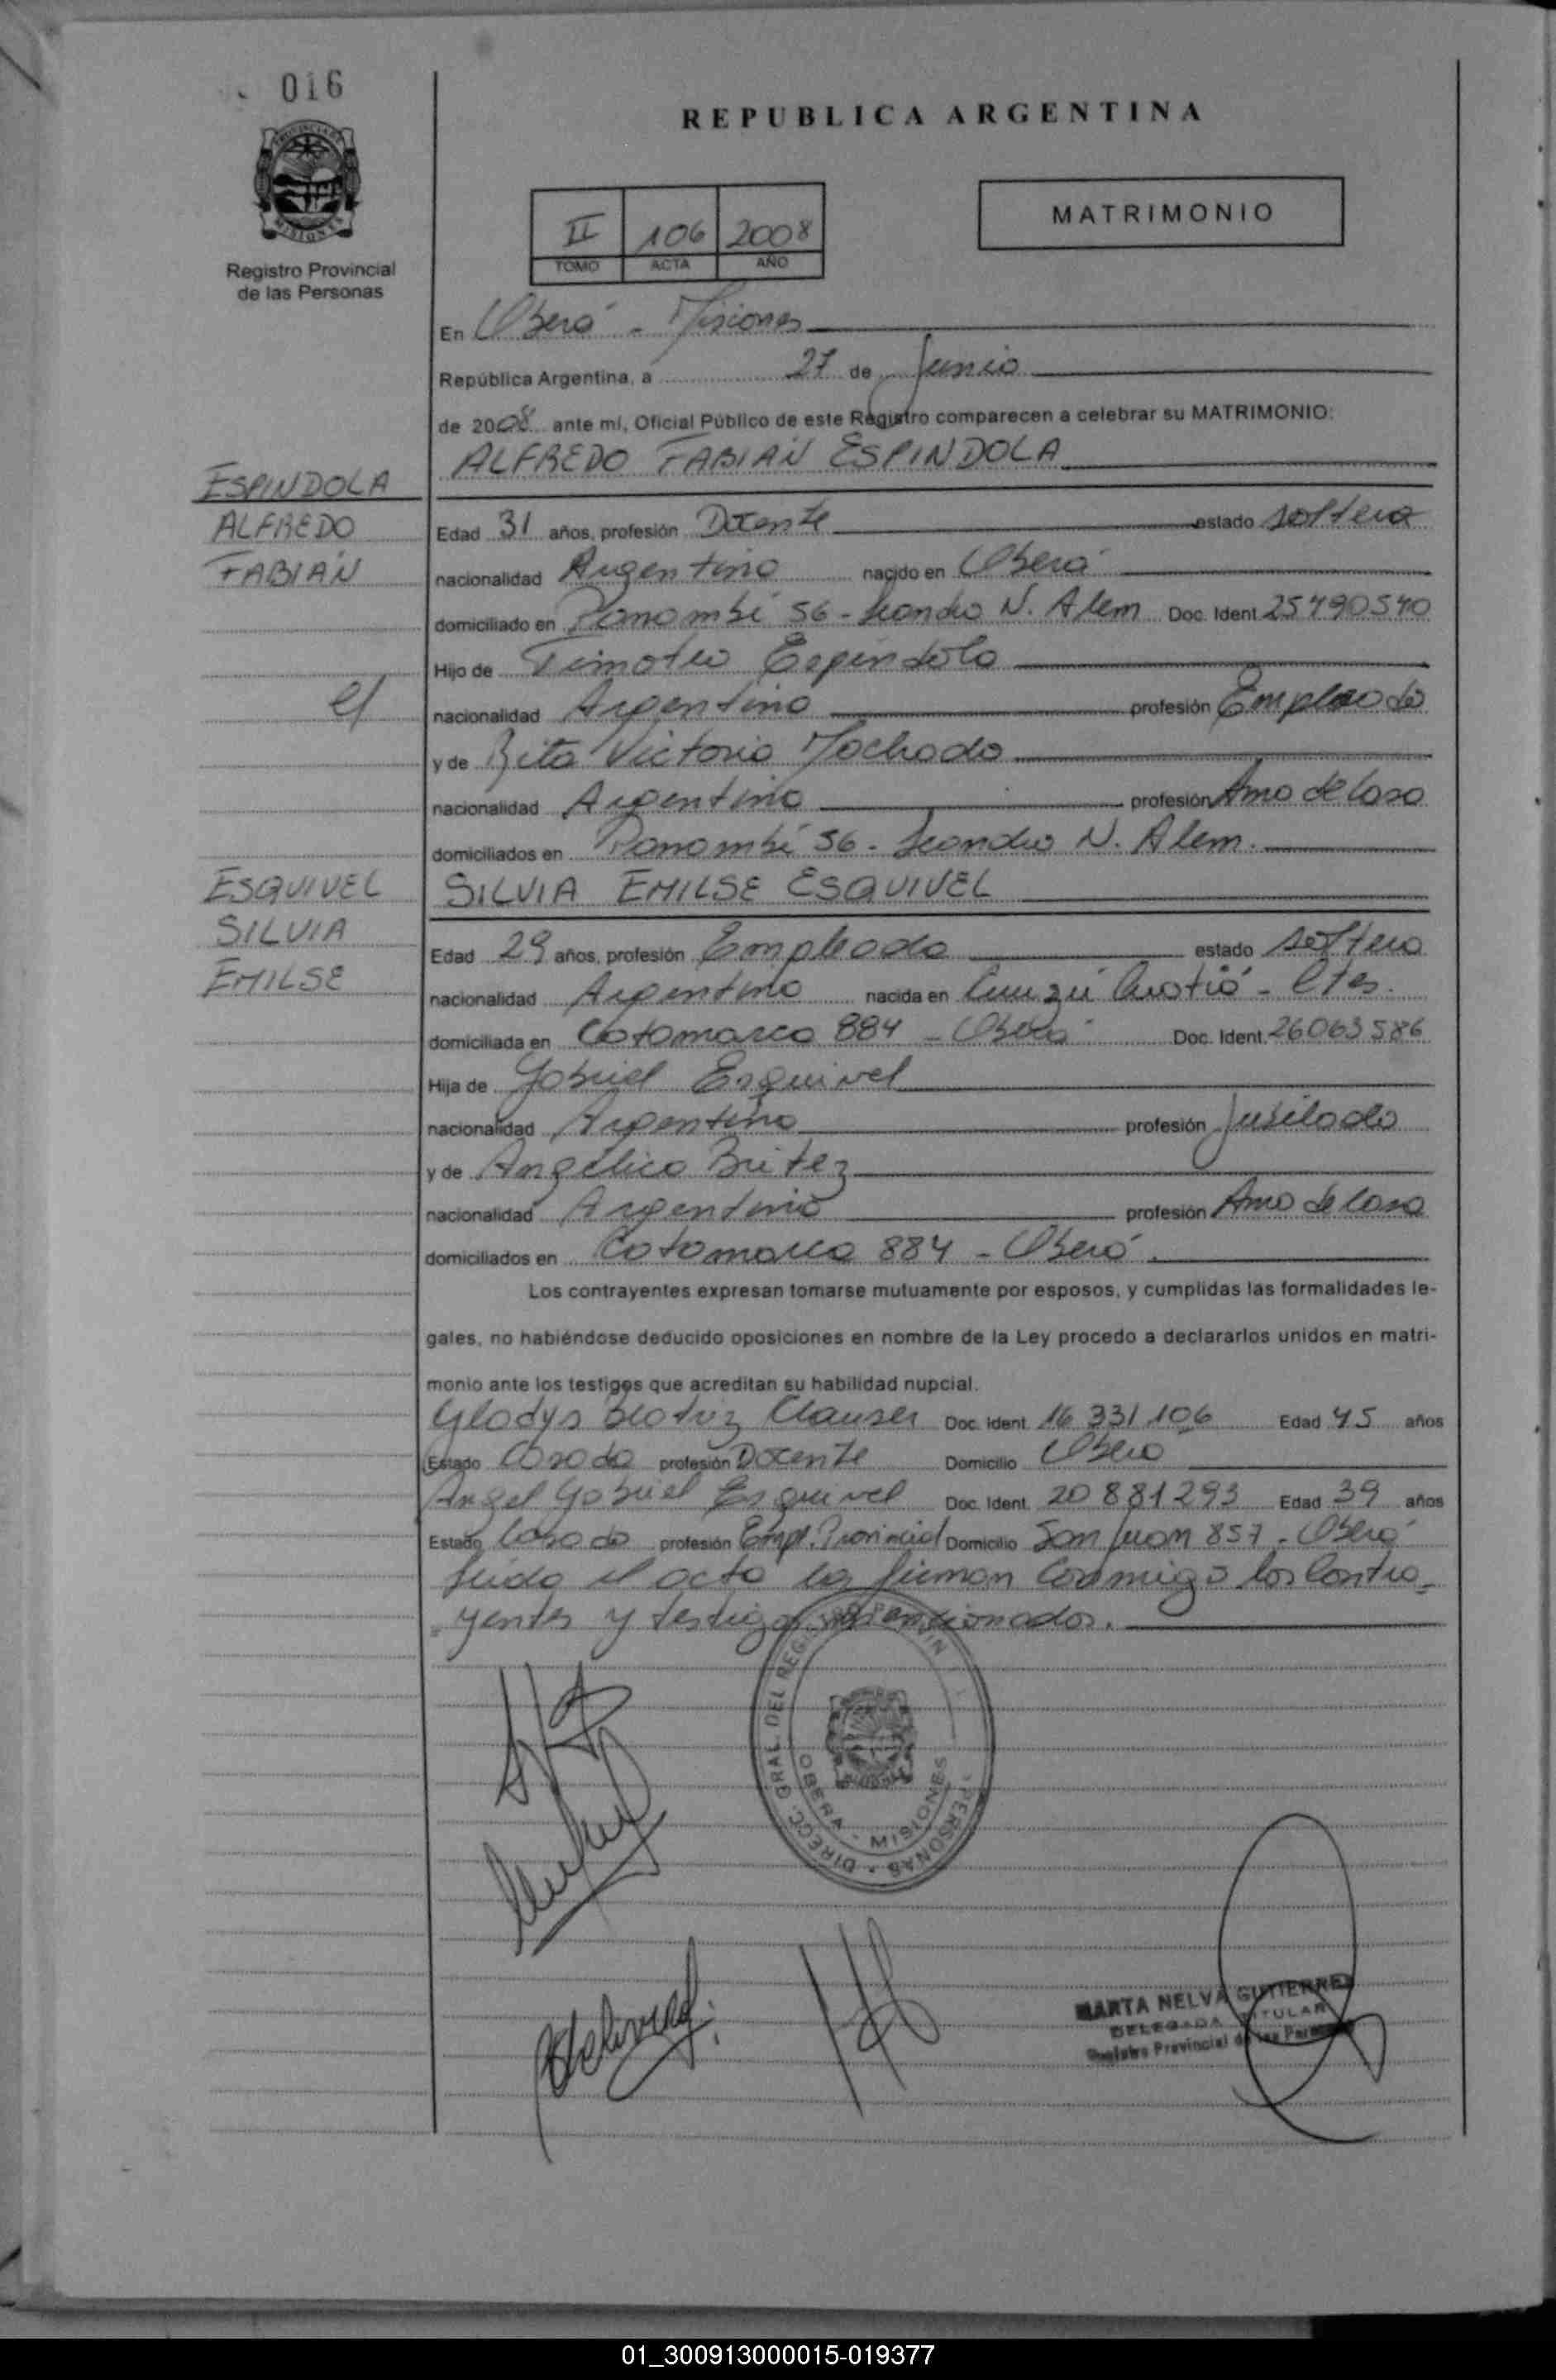 016
REPUBLICA ARGENTINA
PROVINCIA DE
MISIONES
Registro Provincial
de las Personas
II 106 2008
TOMO ACTA AÑO
MATRIMONIO
En Oberá - Misiones
República Argentina, a 27 de Junio
de 2008 ante mí, Oficial Público de este Registro comparecen a celebrar su MATRIMONIO:
ALFREDO FABIÁN ESPINDOLA
ESPINDOLA
ALFREDO
FABIÁN
Edad 31 años, profesión Docente estado soltero
nacionalidad Argentino nacido en Oberá
domiciliado en Panambí 56 - Leandro N. Alem Doc. Ident. 25490540
Hijo de Timoteo Espíndola
nacionalidad Argentino profesión Empleado
y de Rita Victoria Machado
nacionalidad Argentina profesión Ama de Casa
domiciliados en Panambí 56 - Leandro N. Alem.
SILVIA EMILSE ESQUIVEL
ESQUIVEL
SILVIA
EMILSE
Edad 29 años, profesión Empleada estado soltera
nacionalidad Argentina nacida en Curuzú Cuatiá - Ctes.
domiciliada en Catamarca 884 - Oberá Doc. Ident. 26063586
Hija de Gabriel Esquivel
nacionalidad Argentino profesión Jubilado
y de Angélica Britez
nacionalidad Argentina profesión Ama de Casa
domiciliados en Catamarca 884 - Oberá.
Los contrayentes expresan tomarse mutuamente por esposos, y cumplidas las formalidades le-
gales, no habiéndose deducido oposiciones en nombre de la Ley procedo a declararlos unidos en matri-
monio ante los testigos que acreditan su habilidad nupcial.
Gladys Beatriz Clauser Doc. Ident. 16 331.106 Edad 45 años
Estado Casada profesión Docente Domicilio Oberá
Angel Gabriel Esquivel Doc. Ident. 20 881293 Edad 39 años
Estado Casado profesión Empl. Provincial Domicilio San Juan 857 - Oberá
Leída el acta la firman conmigo los Contra-
yentes y testigos mencionados.
DIRECC. GRAL. DEL PERSONAS
OBERA - MISIONES
MARTA NELVA GUTIERREZ
DELEGADA TITULAR
Registro Provincial de las Personas
01_300913000015-019377